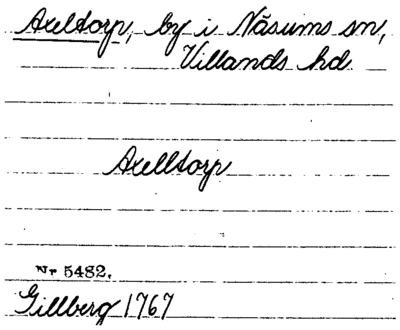 Axeltorp, by i Näsums sn,
Villands hd
Axelltorp
Nr 5482.
Gillberg 1767